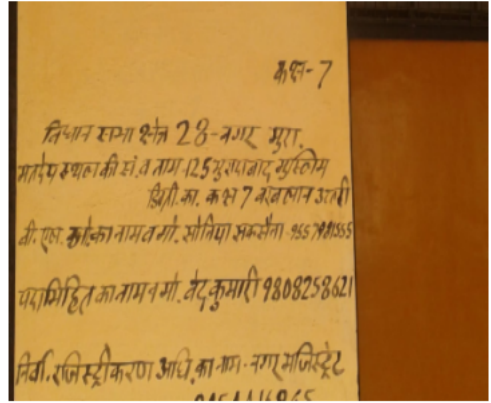 कक्ष-7
विधान सभा क्षेत्र 28-नगर मुरा.
मतदेय स्थल की सं. व नाम-125 मुरादाबाद मुस्लिम
डिग्री.का. कक्ष 7 उत्तरी
बी.एल. का नाम व मो. सोनिया सक्सैना-9557981555
पदाभिहित का नाम व मो. वेद कुमारी 9808258621
निर्वा. रजिस्ट्रीकरण अधि. का नाम-नगर मजिस्ट्रेट